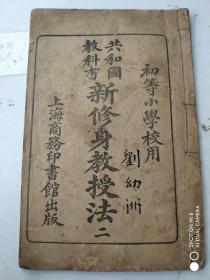 初等小學校用
共和國
教科書
新修身教授法二
劉幼洲
上海商務印書館出版
REDMI NOTE 8 PRO
AI QUAD CAMERA